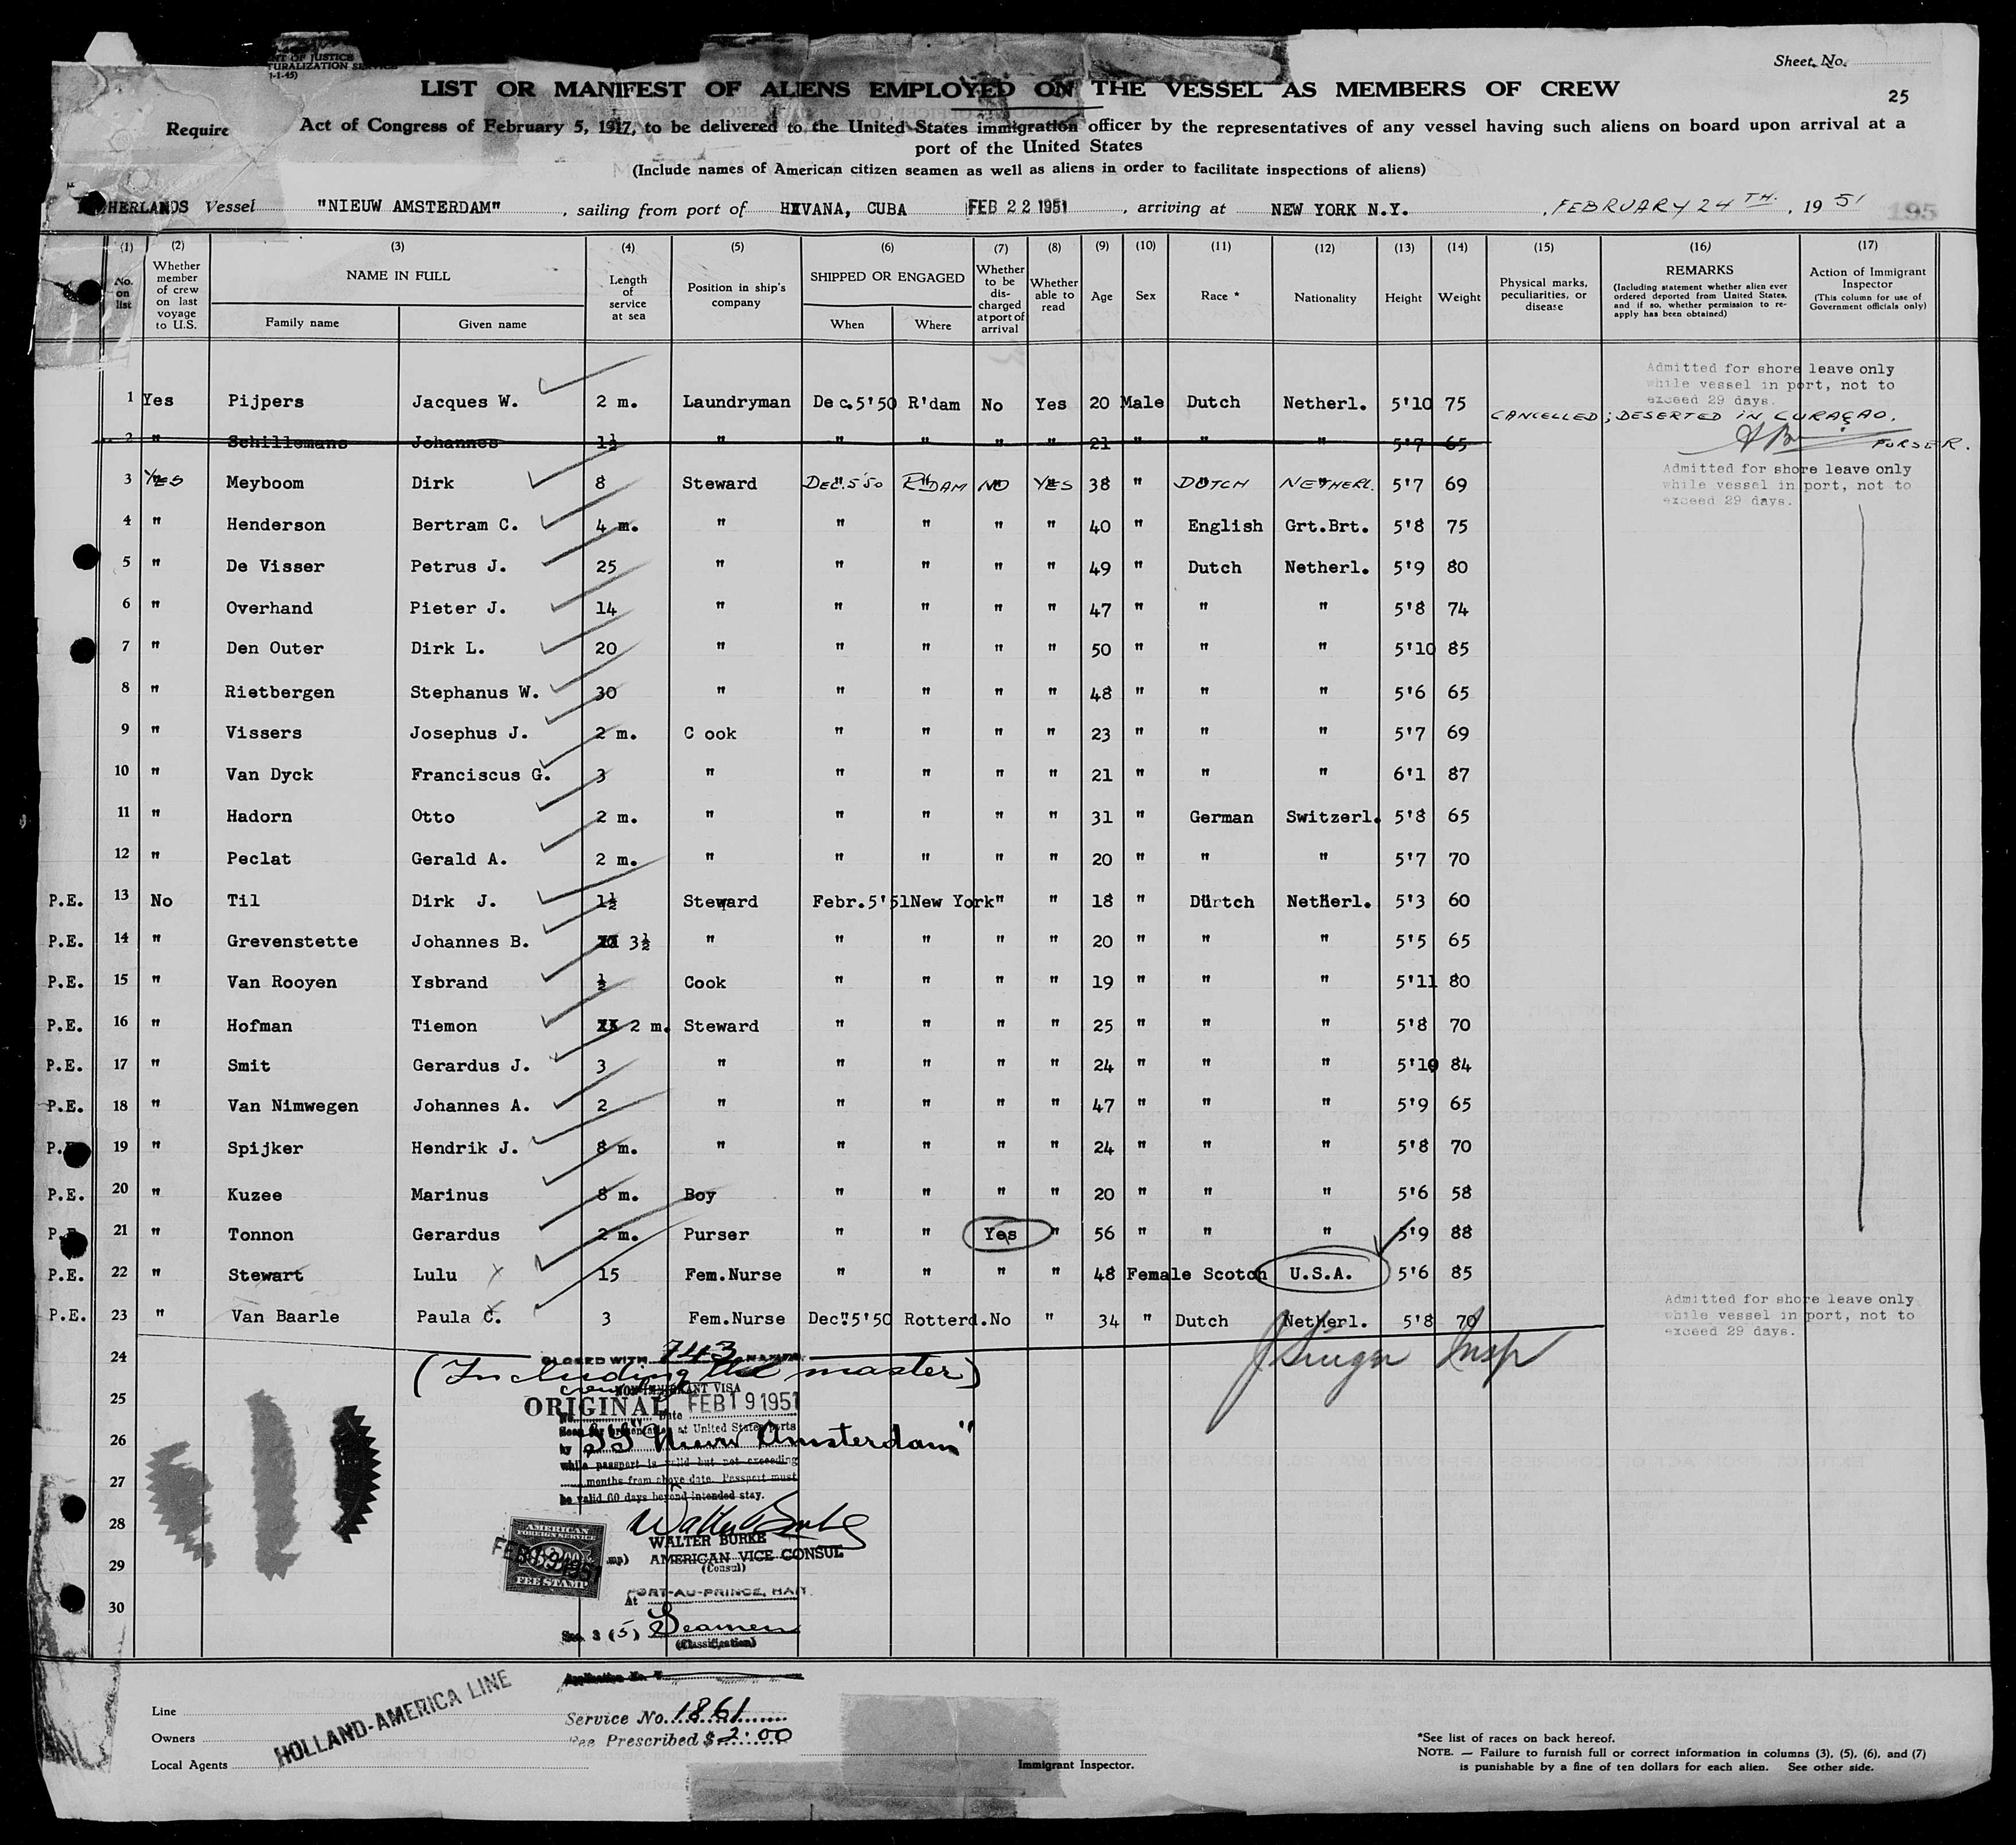 NT OF JUSTICE
TURALIZATION SERVICE
1-1-45)
Sheet No.
LIST OR MANIFEST OF ALIENS EMPLOYED ON THE VESSEL AS MEMBERS OF CREW
25
Require Act of Congress of February 5, 1917, to be delivered to the United States immigration officer by the representatives of any vessel having such aliens on board upon arrival at a
port of the United States
(Include names of American citizen seamen as well as aliens in order to facilitate inspections of aliens)
HERLANDS Vessel "NIEUW AMSTERDAM", sailing from port of HAVANA, CUBA FEB 22 1951, arriving at NEW YORK N.Y., FEBRUARY 24TH, 1951 195
(1) (2) (3) (4) (5) (6) (7) (8) (9) (10) (11) (12) (13) (14) (15) (16) (17)
No. on list
Whether member of crew on last voyage to U.S.
NAME IN FULL
Family name
Given name
Length of service at sea
Position in ship's company
SHIPPED OR ENGAGED
When
Where
Whether to be discharged at port of arrival
Whether able to read
Age
Sex
Race *
Nationality
Height
Weight
Physical marks, peculiarities, or disease
REMARKS
(Including statement whether alien ever ordered deported from United States, and if so, whether permission to reapply has been obtained)
Action of Immigrant Inspector
(This column for use of Government officials only)
Admitted for shore leave only
while vessel in port, not to
exceed 29 days.
1 Yes Pijpers Jacques W. 2 m. Laundryman Dec.5'50 R'dam No Yes 20 Male Dutch Netherl. 5'10 75
CANCELLED; DESERTED IN CURAÇAO.
2 " Schillemans Johannes 1½ " " " " " 21 " " " 5'7 65
PURSER.
3 YES Meyboom Dirk 8 Steward DEC.5'50 R'DAM NO YES 38 " DUTCH NETHERL. 5'7 69
Admitted for shore leave only
while vessel in port, not to
exceed 29 days.
4 " Henderson Bertram C. 4 m. " " " " " 40 " English Grt.Brt. 5'8 75
5 " De Visser Petrus J. 25 " " " " " 49 " Dutch Netherl. 5'9 80
6 " Overhand Pieter J. 14 " " " " " 47 " " " 5'8 74
7 " Den Outer Dirk L. 20 " " " " " 50 " " " 5'10 85
8 " Rietbergen Stephanus W. 30 " " " " " 48 " " " 5'6 65
9 " Vissers Josephus J. 2 m. C ook " " " " 23 " " " 5'7 69
10 " Van Dyck Franciscus G. 3 " " " " " 21 " " " 6'1 87
11 " Hadorn Otto 2 m. " " " " " 31 " German Switzerl. 5'8 65
12 " Peclat Gerald A. 2 m. " " " " " 20 " " " 5'7 70
P.E. 13 No Til Dirk J. 1½ Steward Febr.5'51 New York " " 18 " Dutch Netherl. 5'3 60
P.E. 14 " Grevenstette Johannes B. 3½ " " " " " 20 " " " 5'5 65
P.E. 15 " Van Rooyen Ysbrand ½ Cook " " " " 19 " " " 5'11 80
P.E. 16 " Hofman Tiemon 2 m. Steward " " " " 25 " " " 5'8 70
P.E. 17 " Smit Gerardus J. 3 " " " " " 24 " " " 5'10 84
P.E. 18 " Van Nimwegen Johannes A. 2 " " " " " 47 " " " 5'9 65
P. 19 " Spijker Hendrik J. 8 m. " " " " " 24 " " " 5'8 70
P.E. 20 " Kuzee Marinus 8 m. Boy " " " " 20 " " " 5'6 58
P. 21 " Tonnon Gerardus 2 m. Purser " " Yes " 56 " " " 5'9 88
P.E. 22 " Stewart Lulu 15 Fem.Nurse " " " " 48 Female Scotch U.S.A. 5'6 85
P.E. 23 " Van Baarle Paula C. 3 Fem.Nurse Dec.5'50 Rotterd. No " 34 " Dutch Netherl. 5'8 70
Admitted for shore leave only
while vessel in port, not to
exceed 29 days.
24 CLOSED WITH 743 NAMES
(Including the master)
Insp
NON-IMMIGRANT VISA
25 ORIGINAL No. Date FEB 19 1951
Seen for presentation at United States ports
26 by SS "Nieuw Amsterdam"
while passport is valid but not exceeding
27 months from above date. Passport must
be valid 60 days beyond intended stay.
28 WALTER BURKE
AMERICAN VICE CONSUL
(Consul)
AMERICAN
FOREIGN SERVICE
FEB 19 1951
FEE STAMP
29
At PORT-AU-PRINCE, HAITI
30
Sec. 3 (5) Seamen
(Classification)
Application No. V
Line
HOLLAND-AMERICA LINE
Service No. 1861
Owners
Fee Prescribed $ 2.00
Local Agents
Immigrant Inspector.
*See list of races on back hereof.
NOTE. — Failure to furnish full or correct information in columns (3), (5), (6), and (7)
is punishable by a fine of ten dollars for each alien. See other side.